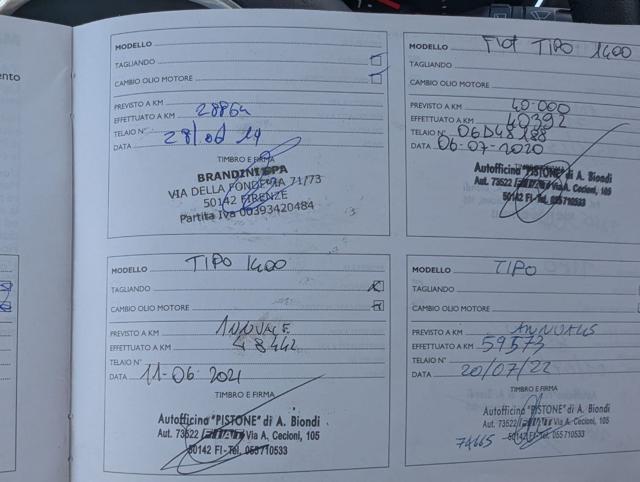 ento
MODELLO
TAGLIANDO
CAMBIO OLIO MOTORE
PREVISTO A KM
EFFETTUATO A KM 28864
TELAIO N°
DATA 28/06/19
TIMBRO E FIRMA
BRANDINI SPA
VIA DELLA FONDERIA 71/73
50142 FIRENZE
Partita Iva 00393420484
MODELLO FIAT TIPO 1400
TAGLIANDO
CAMBIO OLIO MOTORE
PREVISTO A KM 40.000
EFFETTUATO A KM 40392
TELAIO N° 06D48188
DATA 06-07-2020
TIMBRO E FIRMA
Autofficina "PISTONE" di A. Biondi
Aut. 73522 Via A. Cecioni, 105
50142 FI-Tel. 055710533
MODELLO TIPO 1400
TAGLIANDO
CAMBIO OLIO MOTORE
PREVISTO A KM ANNUALE
EFFETTUATO A KM 48442
TELAIO N°
DATA 11-06-2021
TIMBRO E FIRMA
Autofficina "PISTONE" di A. Biondi
Aut. 73522 Via A. Cecioni, 105
50142 FI-Tel. 055710533
MODELLO TIPO
TAGLIANDO
CAMBIO OLIO MOTORE
PREVISTO A KM ANNUALE
EFFETTUATO A KM 59573
TELAIO N°
DATA 20/07/22
TIMBRO E FIRMA
Autofficina "PISTONE" di A. Biondi
Aut. 73522 Via A. Cecioni, 105
50142 FI-Tel. 055710533